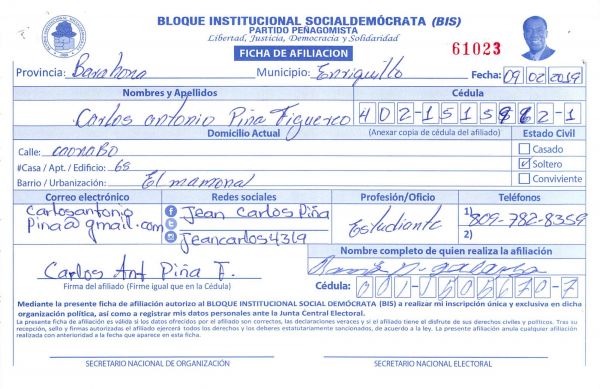 BLOQUE INSTITUCIONAL SOCIALDEMÓCRATA (BIS)
PARTIDO PEÑAGOMISTA
Libertad, Justicia, Democracia y Solidaridad
FICHA DE AFILIACION
61023
Provincia: Barahona Municipio: Enriquillo Fecha: 09 02 2019
Nombres y Apellidos Cédula
Carlos antonio Piña Figuereo 402-15159
Domicilio Actual (Anexar copia de cédula del afiliado) Estado Civil
Calle: Casado
#Casa / Apt. / Edificio: 65 Soltero
Barrio / Urbanización: El mamonal Conviviente
Correo electrónico Redes sociales Profesión/Oficio Teléfonos
Carlosantonio Jean Carlos Piña Estudiante 1) 809-782-8359
Piña@gmail.com 2)
Jeancarlos4319
Nombre completo de quien realiza la afiliación
Carlos Ant Piña F.
Firma del afiliado (Firme igual que en la Cédula) Cédula:
Mediante la presente ficha de afiliación autorizo al BLOQUE INSTITUCIONAL SOCIAL DEMÓCRATA (BIS) a realizar mi inscripción única y exclusiva en dicha
organización política, así como a registrar mis datos personales ante la Junta Central Electoral.
La presente ficha de afiliación es válida si los datos ofrecidos por el afiliado son correctos, las declaraciones veraces y si el afiliado tiene el disfrute de sus derechos civiles y políticos. Tras su
recepción, sello y firmas autorizadas el afiliado ejercerá todos los derechos y los deberes estatutariamente sancionados, de acuerdo a la ley. La presente afiliación anula cualquier afiliación
realizada con anterioridad a la fecha que aparece en esta ficha.
SECRETARIO NACIONAL DE ORGANIZACIÓN SECRETARIO NACIONAL ELECTORAL